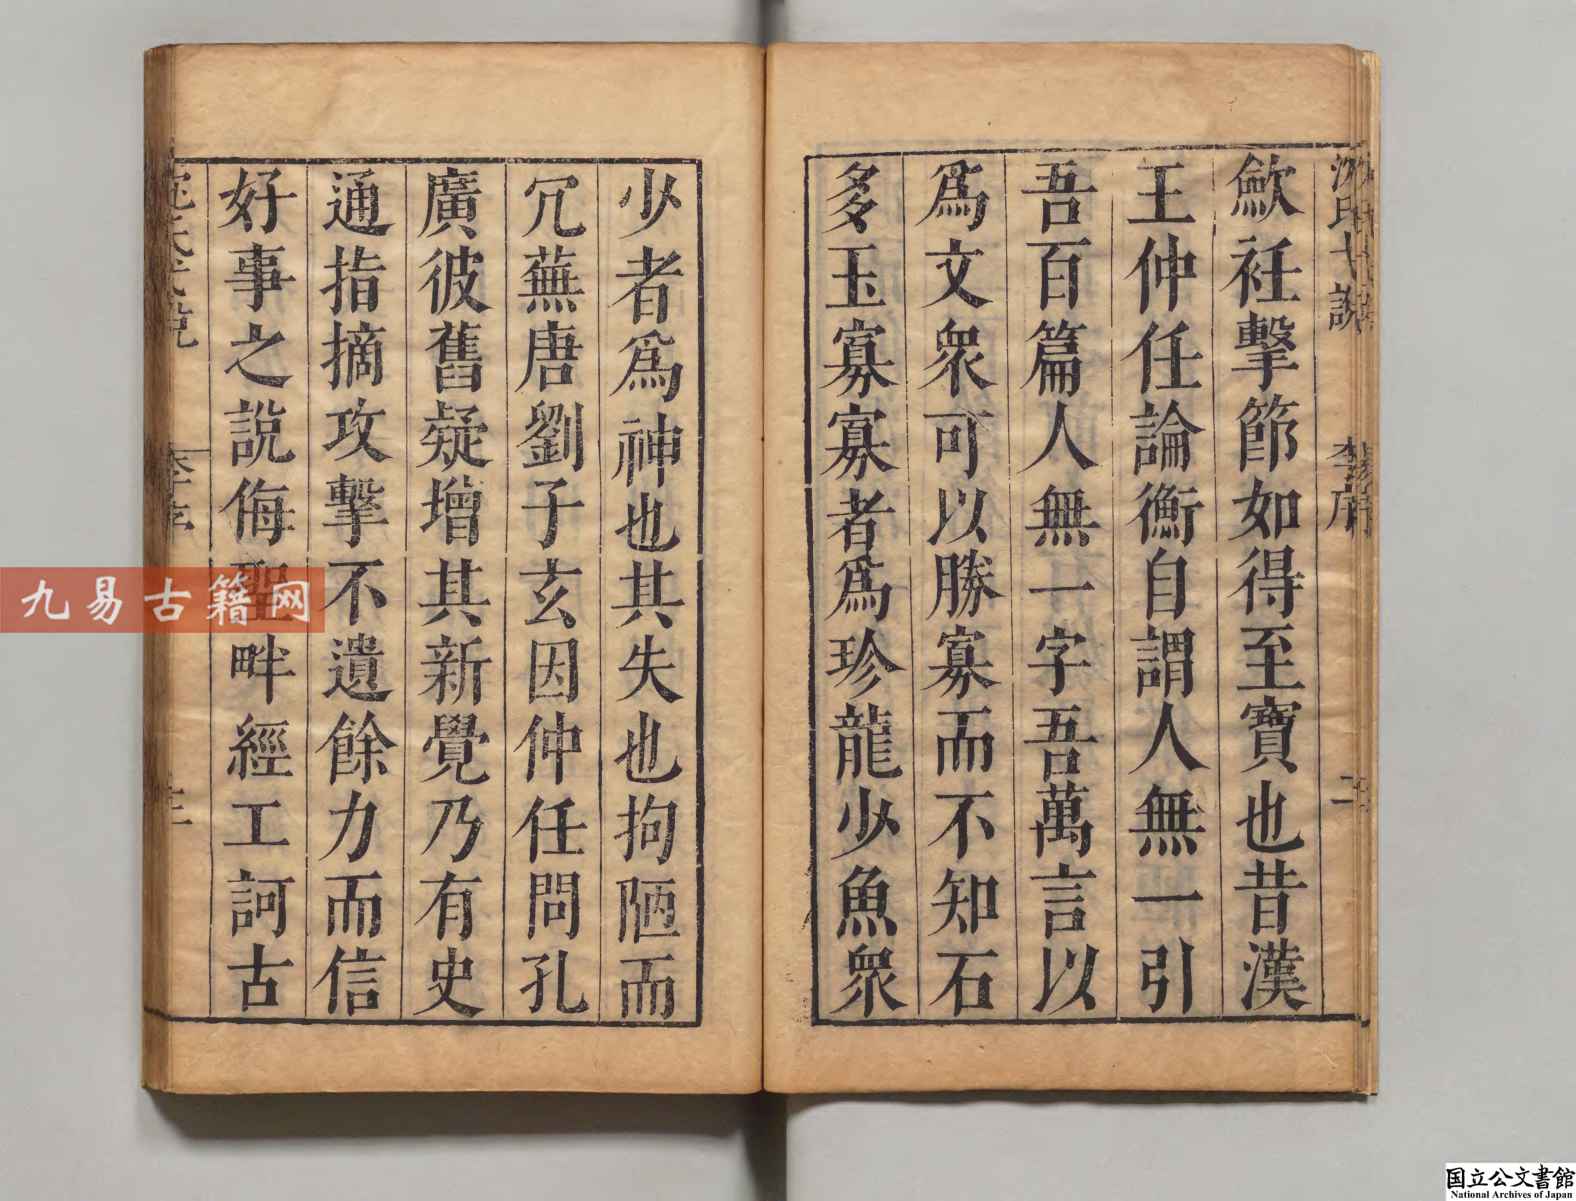 沈氏弋說
歛衽擊節如得至寶也昔漢
王仲任論衡自謂人無一引
吾百篇人無一字吾萬言以
爲文衆可以勝寡而不知石
多玉寡寡者爲珍龍少魚衆
少者爲神也其失也拘陋而
冗蕪唐劉子玄因仲任問孔
廣彼舊疑增其新覺乃有史
通指摘攻擊不遺餘力而信
好事之說侮聖畔經工訶古
九易古籍网
国立公文書館
National Archives of Japan